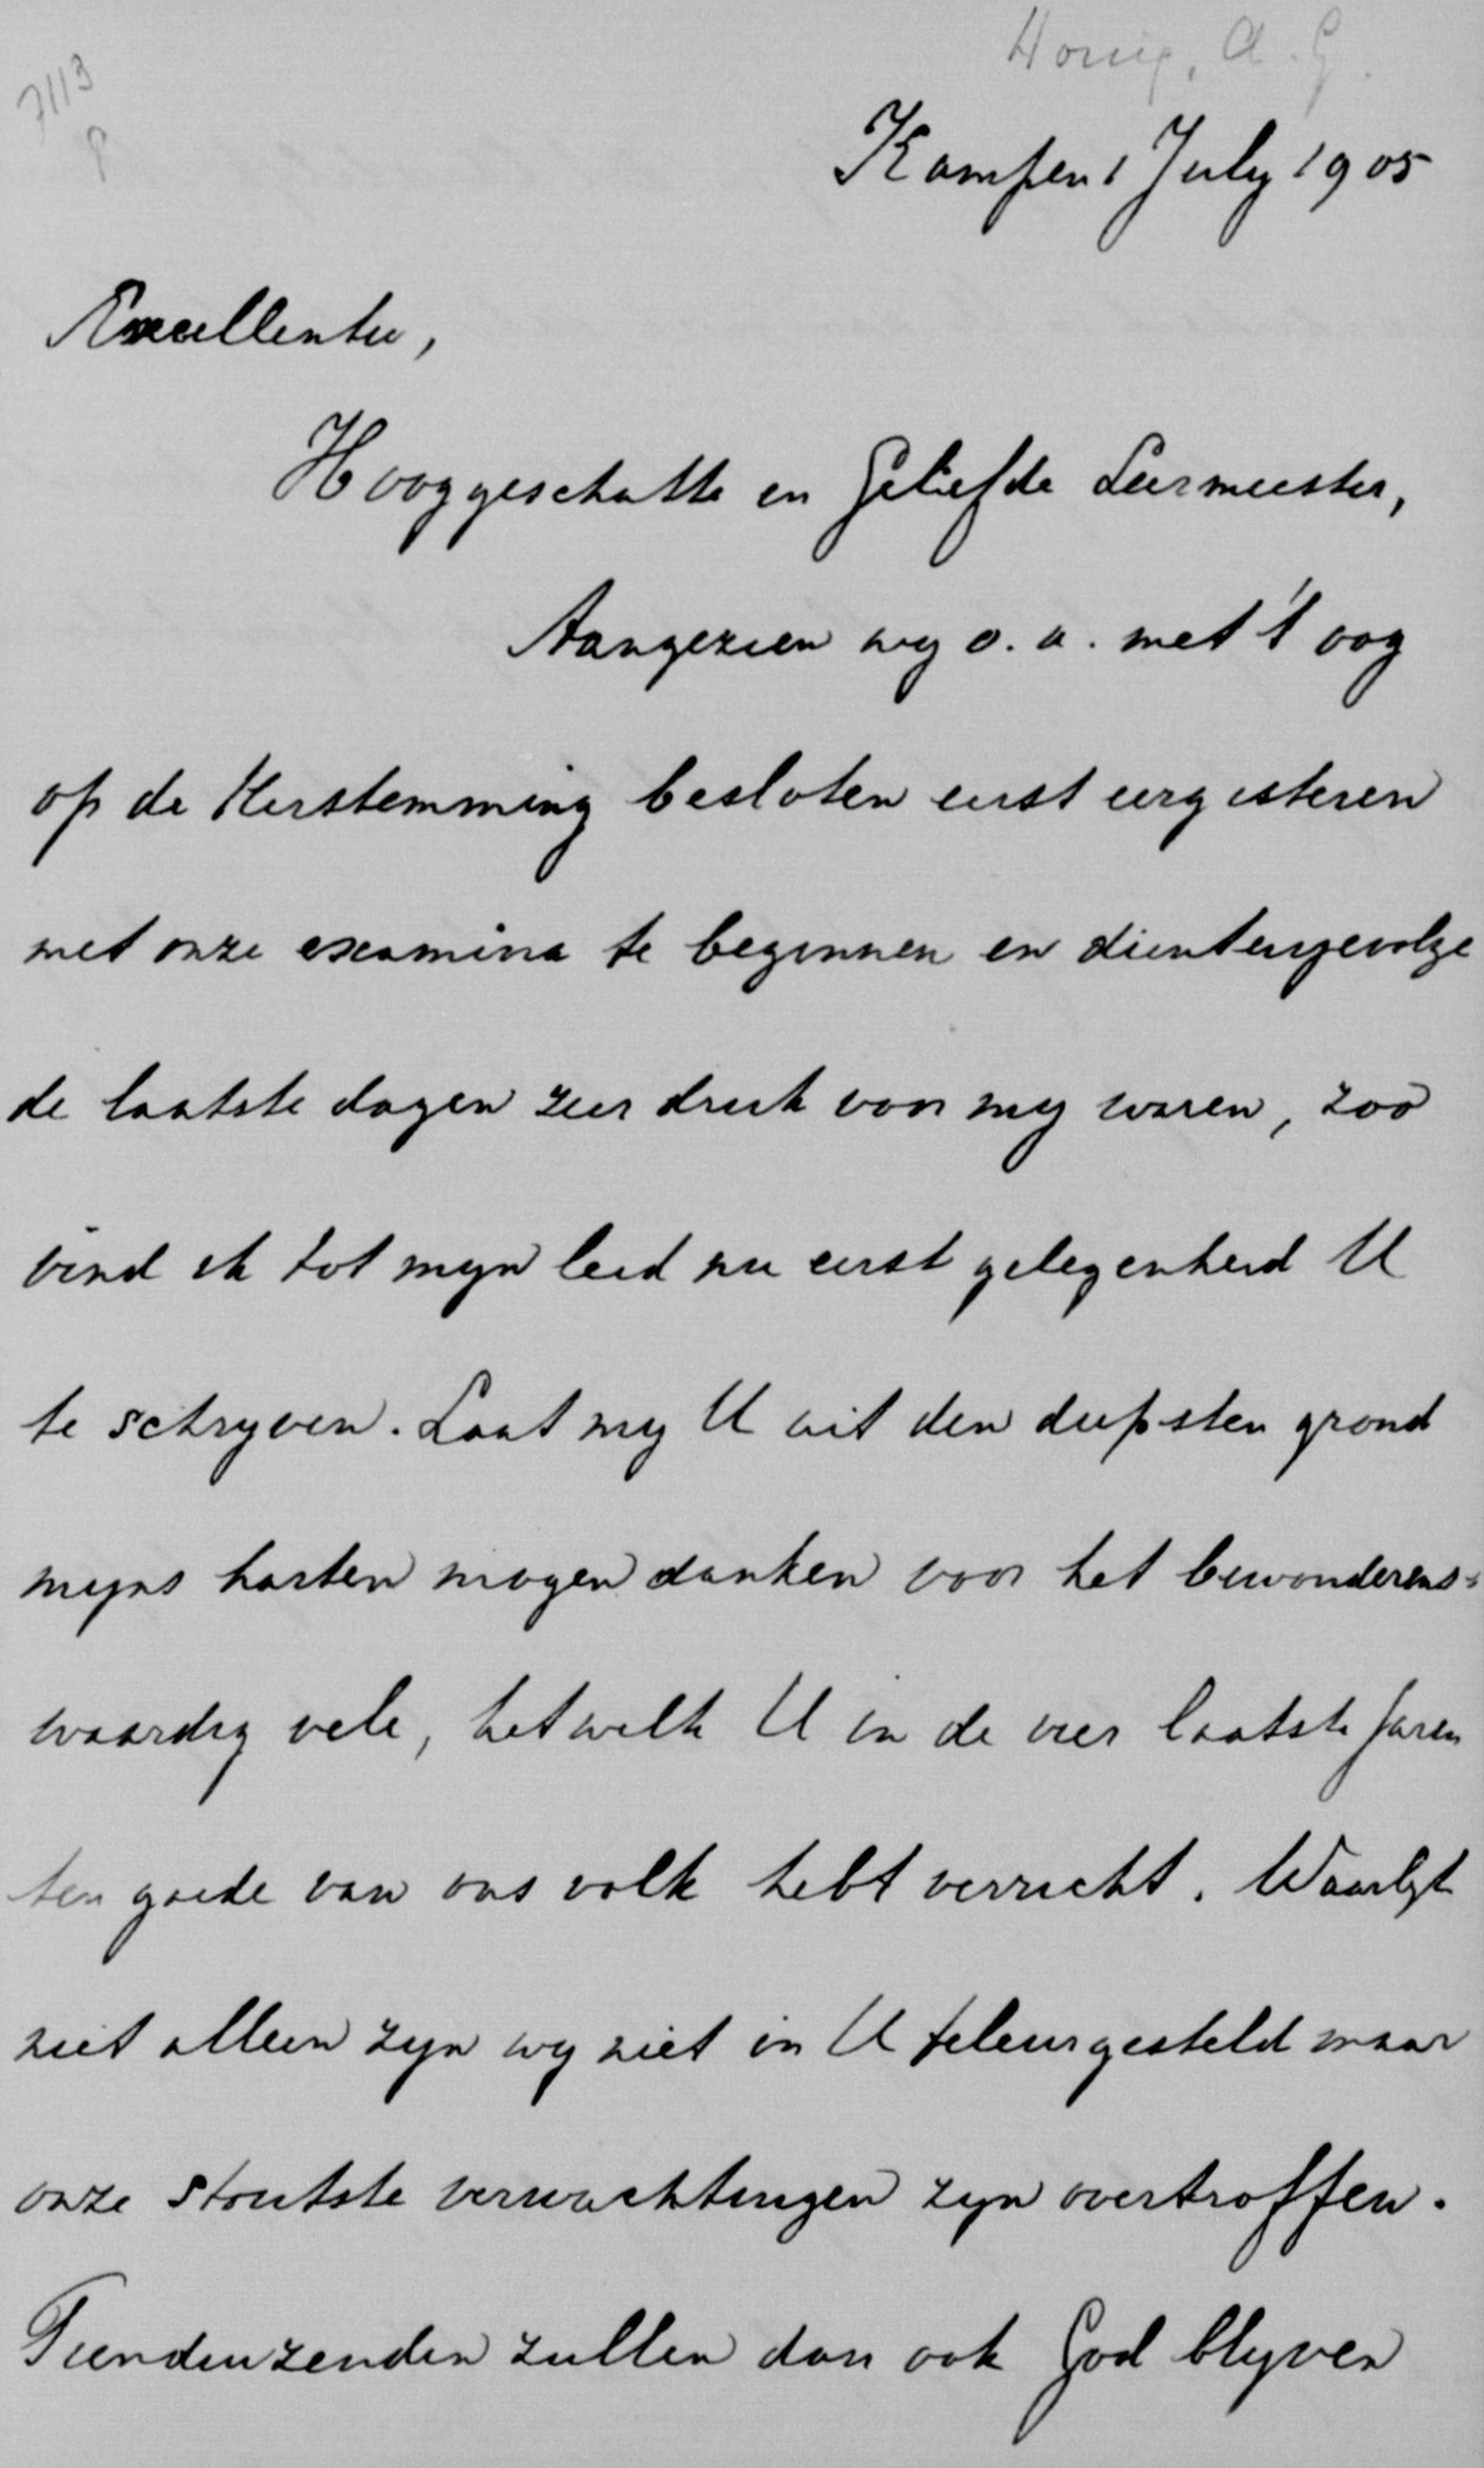 Honig, A. G.
7113
P
Kampen 1 July 1905
Excellentie,
Hooggeschatte en Geliefde Leermeester,
Aangezien wy o. a. met 't oog
op de Herstemming besloten eerst eergisteren
met onze examina te beginnen en dientengevolge
de laatste dagen zeer druk voor my waren, zoo
vind ik tot myn leed nu eerst gelegenheid U
te schryven. Laat my U uit den diepsten grond
myns harten mogen danken voor het bewonderens=
waardig vele, hetwelk U in de vier laatste Jaren
ten goede van ons volk hebt verricht. Waarlyk
niet alleen zyn wy niet in U teleurgesteld maar
onze stoutste verwachtingen zyn overtroffen.
Tienduizenden zullen dan ook God blyven